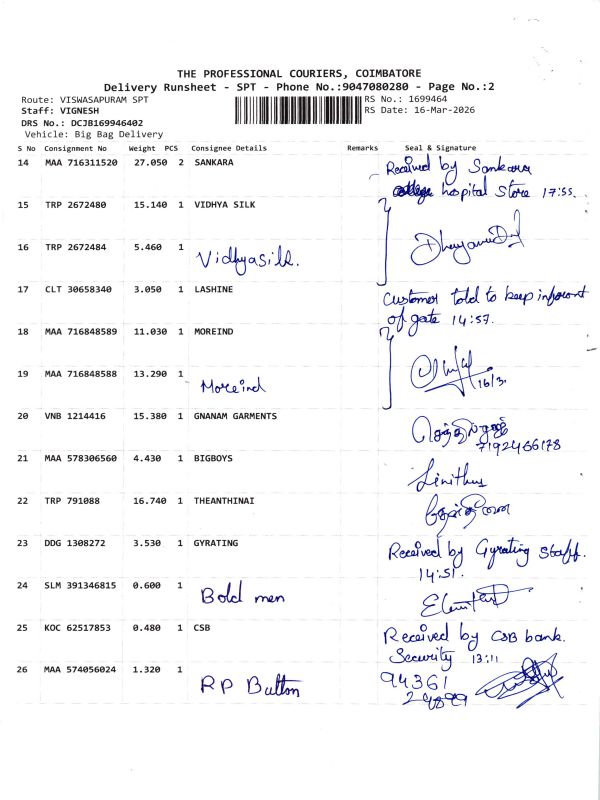 THE PROFESSIONAL COURIERS, COIMBATORE
Delivery Runsheet - SPT - Phone No.:9047080280 - Page No.:2
Route: VISWASAPURAM SPT RS No.: 1699464
Staff: VIGNESH RS Date: 16-Mar-2026
DRS No.: DCJB169946402
Vehicle: Big Bag Delivery
S No Consignment No Weight PCS Consignee Details Remarks Seal & Signature
14 MAA 716311520 27.050 2 SANKARA Received by Sankara
hospital Store 17:55.
15 TRP 2672480 15.140 1 VIDHYA SILK
16 TRP 2672484 5.460 1 Vidhyasilk.
17 CLT 30658340 3.050 1 LASHINE Customer told to keep infront
of gate 14:57.
18 MAA 716848589 11.030 1 MOREIND
19 MAA 716848588 13.290 1 Moreind 16/3.
20 VNB 1214416 15.380 1 GNANAM GARMENTS
7192466178
21 MAA 578306560 4.430 1 BIGBOYS
22 TRP 791088 16.740 1 THEANTHINAI
23 DDG 1308272 3.530 1 GYRATING Received by Gyrating Staff.
14:51.
24 SLM 391346815 0.600 1 Bold men
25 KOC 62517853 0.480 1 CSB Received by CSB bank.
Security 13:11
26 MAA 574056024 1.320 1 RP Button 94361
24899